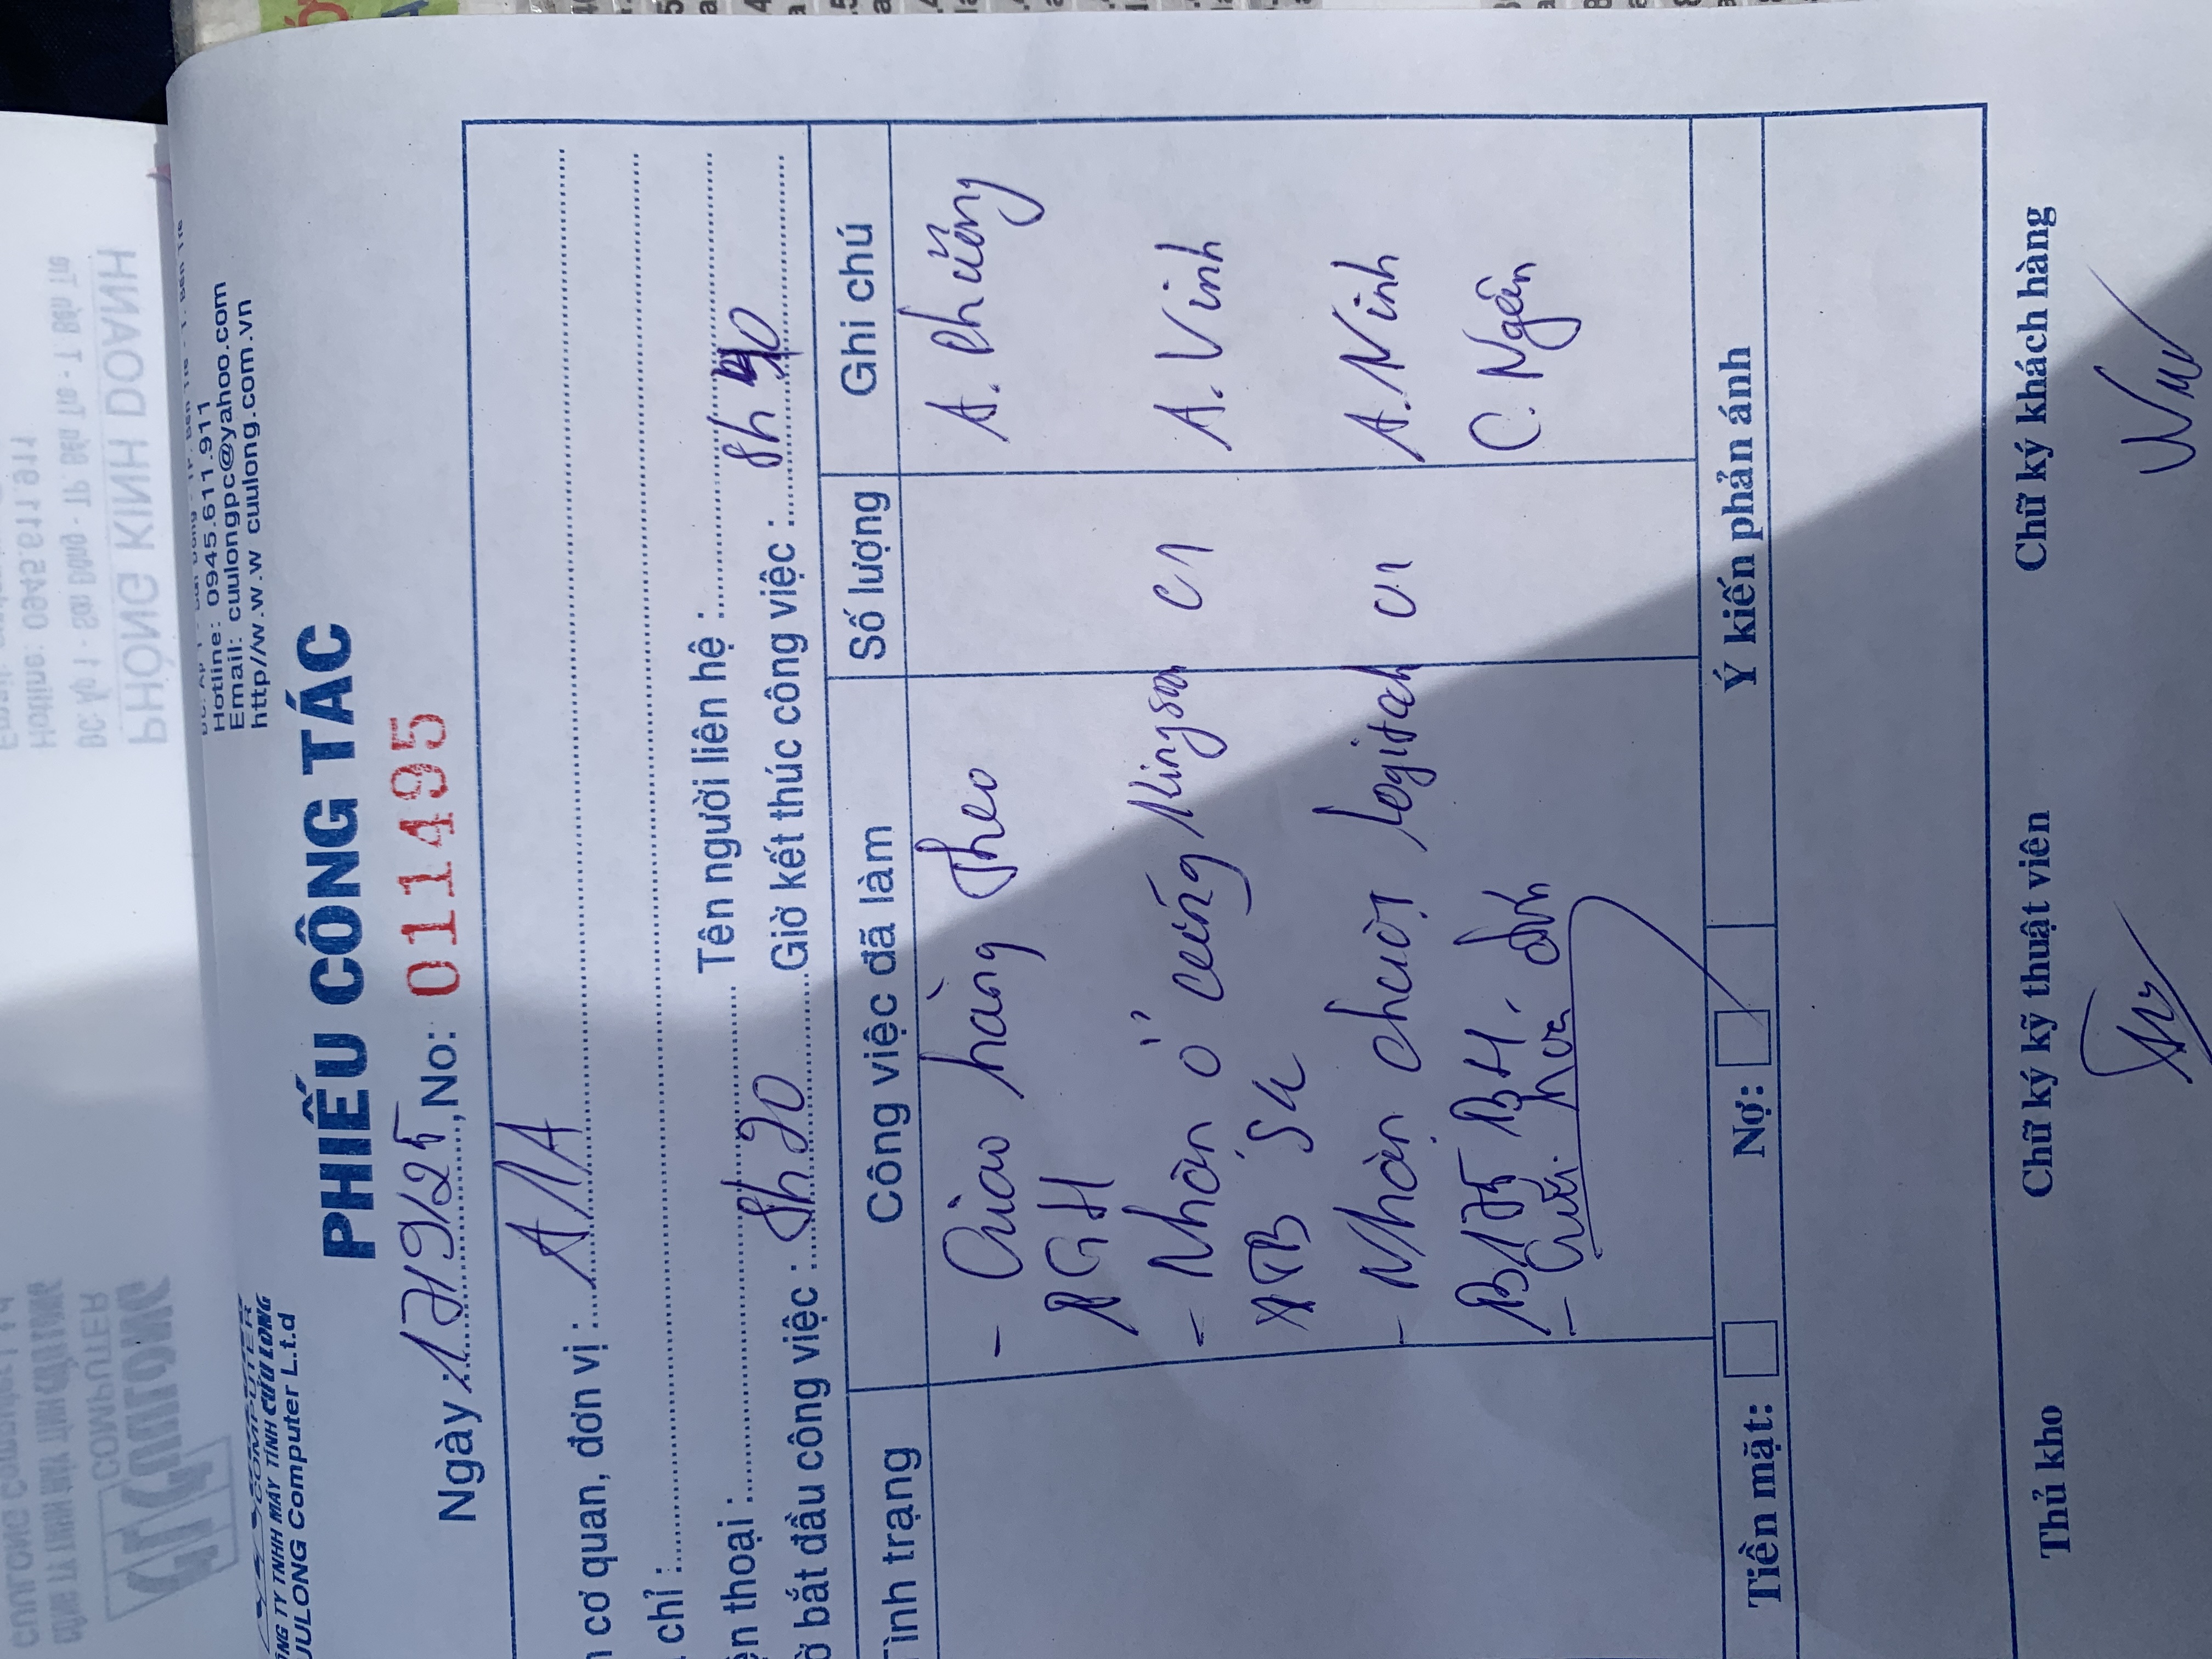 COMPUTER
ÔNG TY TNHH MÁY TÍNH CỬU LONG
UULONG Computer L.t.d
Hotline: 0945.611.911
Email: cuulongpc@yahoo.com
http//w.w.w cuulong.com.vn
PHIẾU CÔNG TÁC
Ngày 17/9/25, No: 011495
n cơ quan, đơn vị : A/1A
chỉ :
ện thoại : Tên người liên hệ :
ờ bắt đầu công việc : 8h20 Giờ kết thúc công việc : 8h40
Tình trạng Công việc đã làm Số lượng Ghi chú
- Giao hàng theo A. Phương
PGH
- Nhận ổ cứng Kingson 01 A. Vinh
XTB SK
- Nhận chuột logitech 01 A. Ninh
B175 BH. C. Ngân
- Gửi hóa đơn
Tiền mặt: Nợ: Ý kiến phản ánh
Thủ kho Chữ ký kỹ thuật viên Chữ ký khách hàng